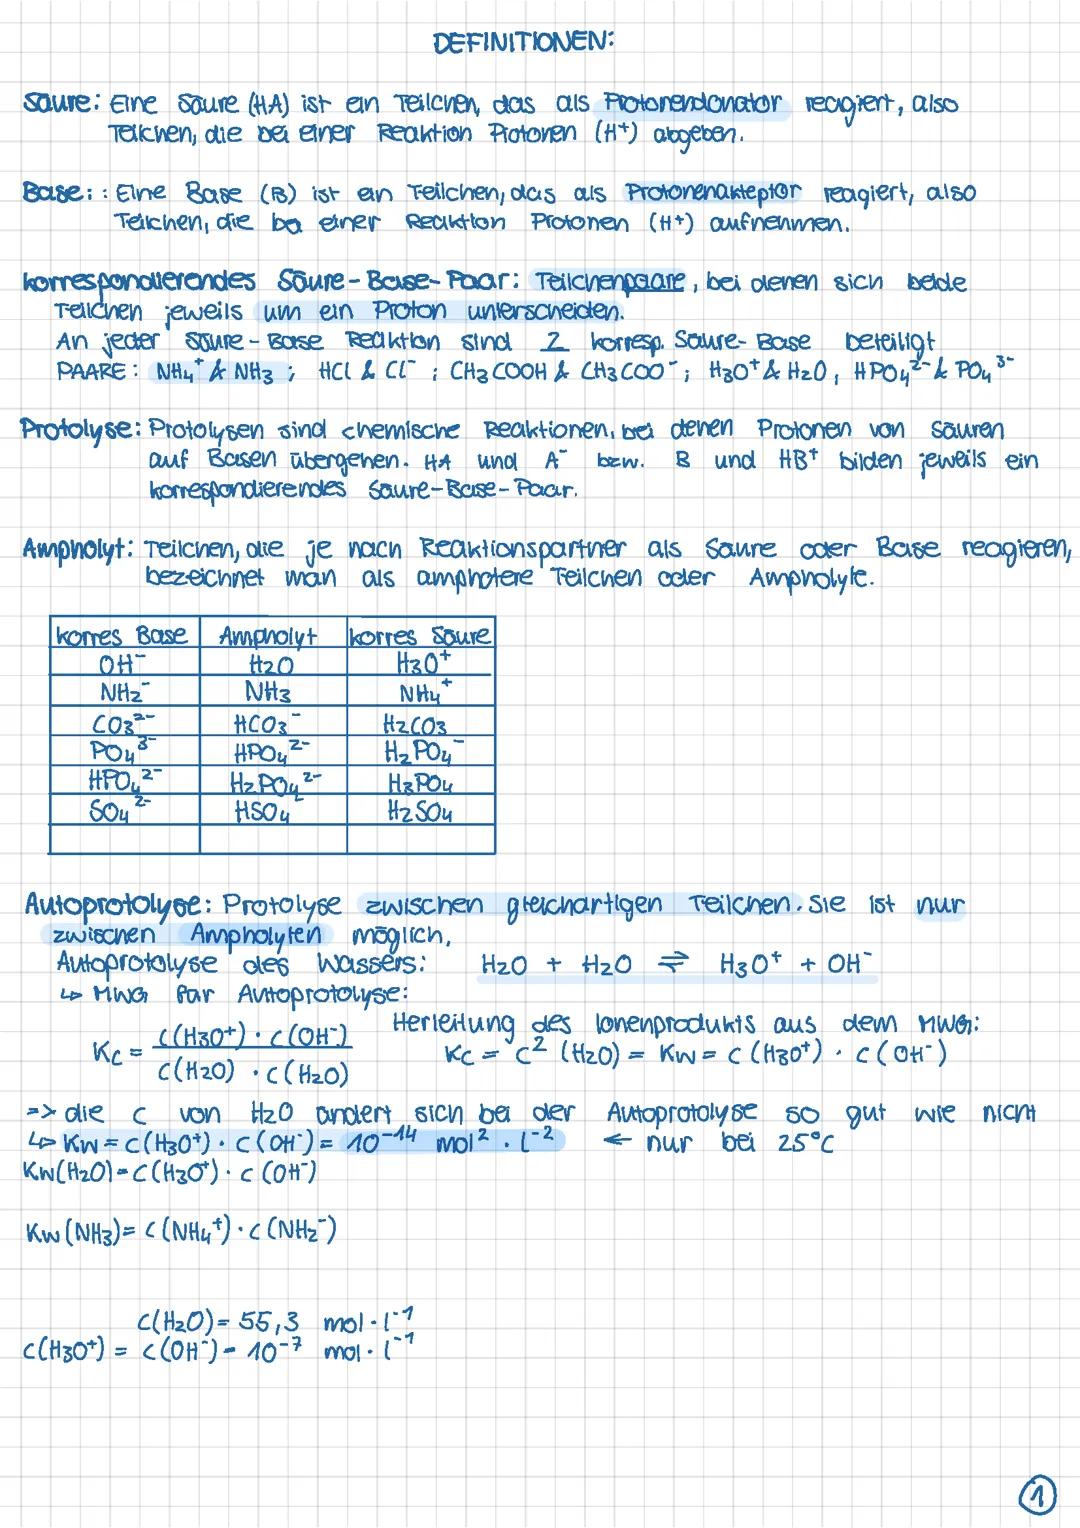 DEFINITIONEN:
Säure: Eine Säure (HA) ist ein Teilchen, das als Protonendonator reagiert, also
Teilchen, die bei einer Reaktion Protonen (H⁺) abgeben.
Base: : Eine Base (B) ist ein Teilchen, das als Protonenakteptor reagiert, also
Teilchen, die bei einer Reaktion Protonen (H⁺) aufnehmen.
korrespondierendes Säure-Base-Paar: Teilchenpaare, bei denen sich beide
Teilchen jeweils um ein Proton unterscheiden.
An jeder Säure-Base Reaktion sind 2 korresp. Säure-Base beteiligt
PAARE: NH₄⁺ & NH₃ ; HCl & Cl⁻ ; CH₃COOH & CH₃COO⁻ ; H₃O⁺ & H₂O , HPO₄²⁻ & PO₄³⁻
Protolyse: Protolysen sind chemische Reaktionen, bei denen Protonen von Säuren
auf Basen übergehen. HA und A⁻ bzw. B und HB⁺ bilden jeweils ein
korrespondierendes Säure-Base-Paar.
Ampholyt: Teilchen, die je nach Reaktionspartner als Säure oder Base reagieren,
bezeichnet man als amphotere Teilchen oder Ampholyte.
korres Base Ampholyt korres Säure
OH⁻ H₂O H₃O⁺
NH₂⁻ NH₃ NH₄⁺
CO₃²⁻ HCO₃⁻ H₂CO₃
PO₄³⁻ HPO₄²⁻ H₂PO₄⁻
HPO₄²⁻ H₂PO₄²⁻ H₃PO₄
SO₄²⁻ HSO₄⁻ H₂SO₄
Autoprotolyse: Protolyse zwischen gleichartigen Teilchen. Sie ist nur
zwischen Ampholyten möglich,
Autoprotolyse des Wassers: H₂O + H₂O ⇌ H₃O⁺ + OH⁻
↳ MWG für Autoprotolyse:
Herleitung des Ionenprodukts aus dem MWG:
Kc = c(H₃O⁺) · c(OH⁻) / c(H₂O) · c(H₂O)
Kc = c² (H₂O) = Kw = c (H₃O⁺) · c(OH⁻)
=> die c von H₂O ändert sich bei der Autoprotolyse so gut wie nicht
↳ Kw = c(H₃O⁺) · c(OH⁻) = 10⁻¹⁴ mol² · l⁻² ← nur bei 25°C
Kw(H₂O) = c(H₃O⁺) · c (OH⁻)
Kw (NH₃) = c(NH₄⁺) · c(NH₂⁻)
c(H₂O) = 55,3 mol · l⁻¹
c(H₃O⁺) = c(OH⁻) = 10⁻⁷ mol · l⁻¹
1